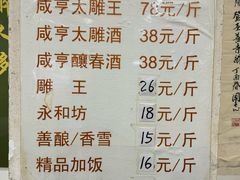 咸亨太雕王 78元/斤
咸亨太雕酒 38元/斤
咸亨釀春酒 38元/斤
雕王 26元/斤
永和坊 18元/斤
善酿/香雪 15元/斤
精品加饭 16元/斤